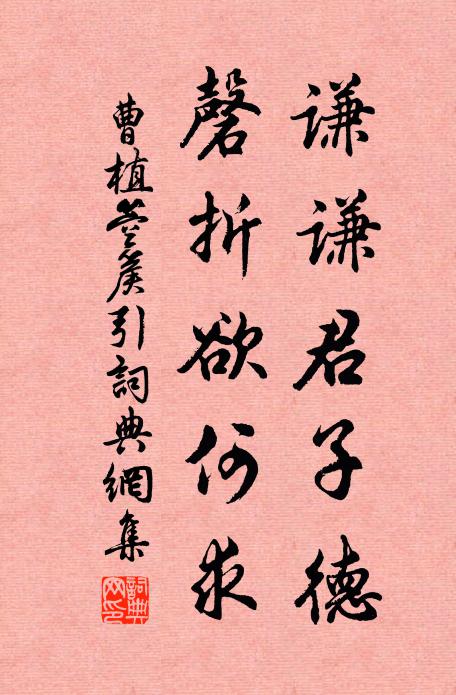 謙謙君子德
磬折欲何求
曹植箜篌引詞典網集
詞典
网印